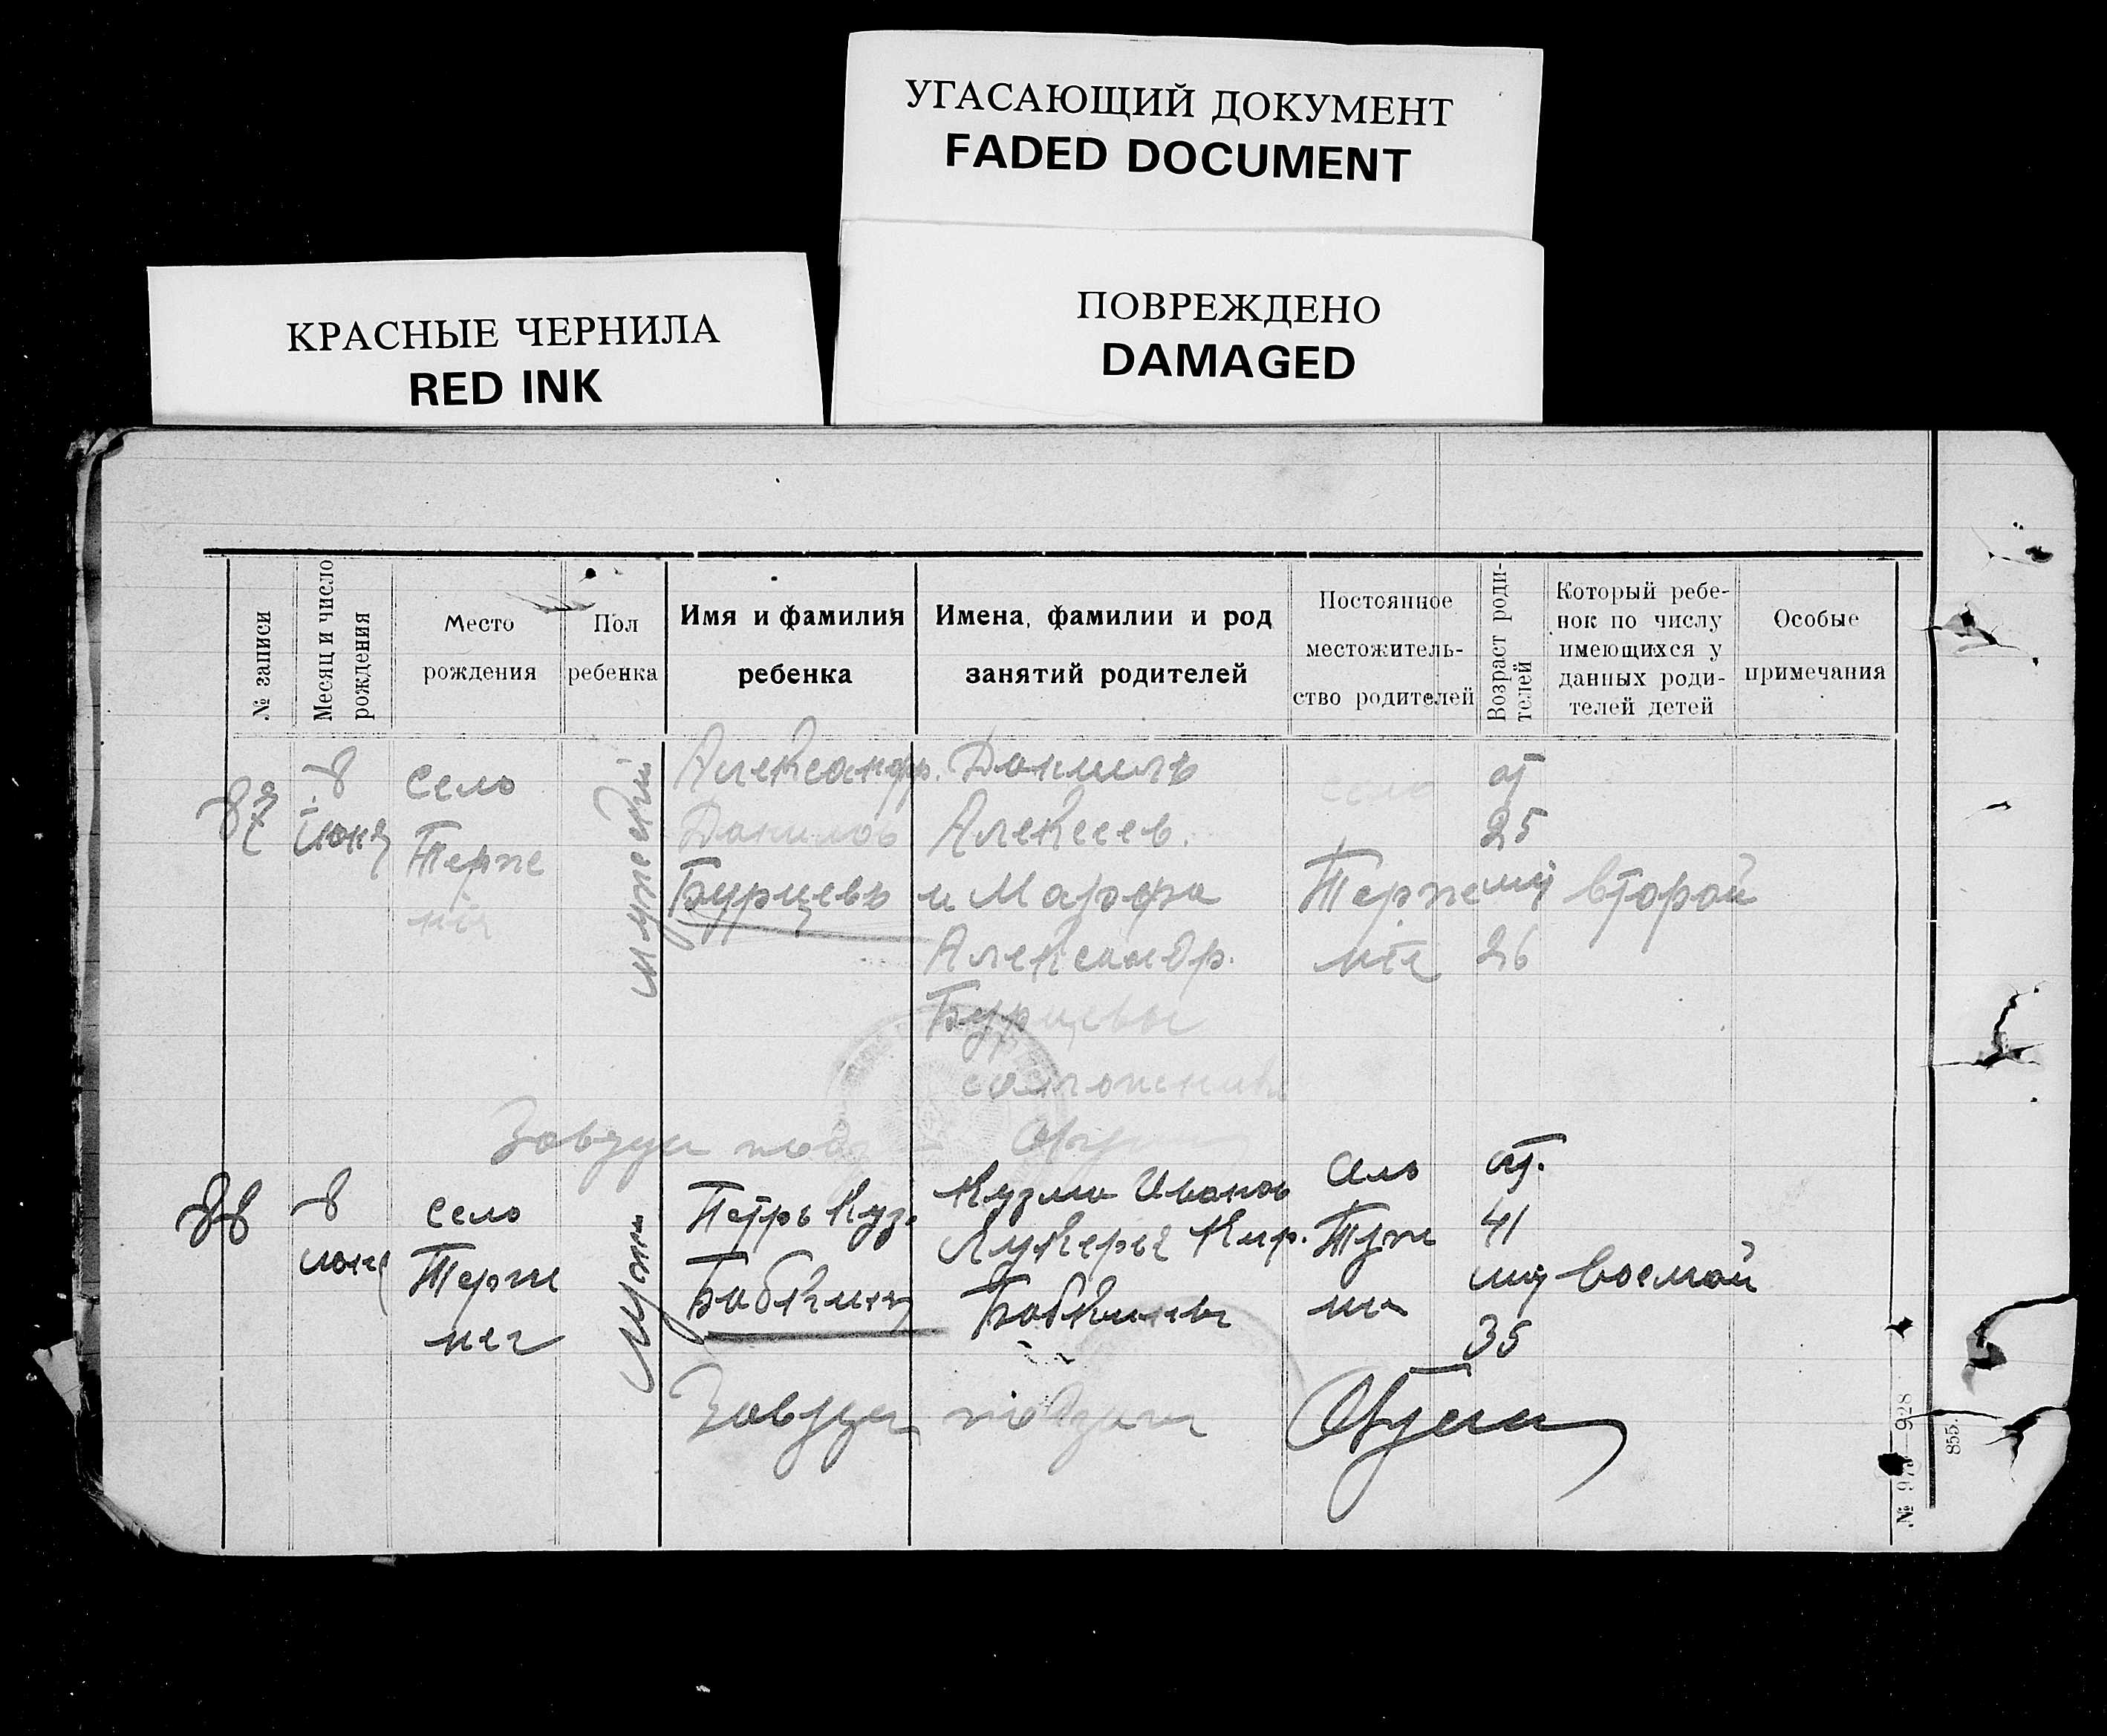 УГАСАЮЩИЙ ДОКУМЕНТ
FADED DOCUMENT
ПОВРЕЖДЕНО
DAMAGED
КРАСНЫЕ ЧЕРНИЛА
RED INK
№ записи
Месяц и число
рождения
Место
рождения
Пол
ребенка
Имя и фамилия
ребенка
Имена, фамилии и род
занятий родителей
Постоянное
местожитель-
ство родителей
Возраст роди-
телей
Который ребе-
нок по числу
имеющихся у
данных роди-
телей детей
Особые
примечания
87
8
июня
село
Терпе
ния
мужской
Александр.
Данилов
Бурцевъ
Данилъ
Алексеев.
и Марфа
Александр.
Бурцевы
село
Терпе
ния
от
25
мат
26
второй
Завзаг
88
8
июня
село
Терпе
ния
муж
Петръ Куз.
Бабкин
Кузма Иванов
Лукерья Кир.
Бабкины
село
Терпе
ния
от.
41
мат
35
восмой
Завзаг подзаг
855.